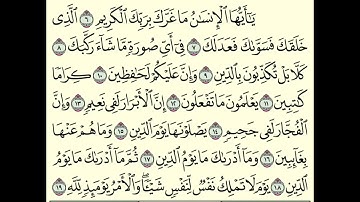 يَـٰٓأَيُّهَا ٱلْإِنسَـٰنُ مَا غَرَّكَ بِرَبِّكَ ٱلْكَرِيمِ ٦ ٱلَّذِى
خَلَقَكَ فَسَوَّىٰكَ فَعَدَلَكَ ٧ فِىٓ أَىِّ صُورَةٍ مَّا شَآءَ رَكَّبَكَ ٨
كَلَّا بَلْ تُكَذِّبُونَ بِٱلدِّينِ ٩ وَإِنَّ عَلَيْكُمْ لَحَـٰفِظِينَ ١٠ كِرَامًا
كَـٰتِبِينَ ١١ يَعْلَمُونَ مَا تَفْعَلُونَ ١٢ إِنَّ ٱلْأَبْرَارَ لَفِى نَعِيمٍ ١٣ وَإِنَّ
ٱلْفُجَّارَ لَفِى جَحِيمٍ ١٤ يَصْلَوْنَهَا يَوْمَ ٱلدِّينِ ١٥ وَمَا هُمْ عَنْهَا
بِغَآئِبِينَ ١٦ وَمَآ أَدْرَىٰكَ مَا يَوْمُ ٱلدِّينِ ١٧ ثُمَّ مَآ أَدْرَىٰكَ مَا يَوْمُ
ٱلدِّينِ ١٨ يَوْمَ لَا تَمْلِكُ نَفْسٌ لِّنَفْسٍ شَيْـًٔا ۖ وَٱلْأَمْرُ يَوْمَئِذٍ لِّلَّهِ ١٩